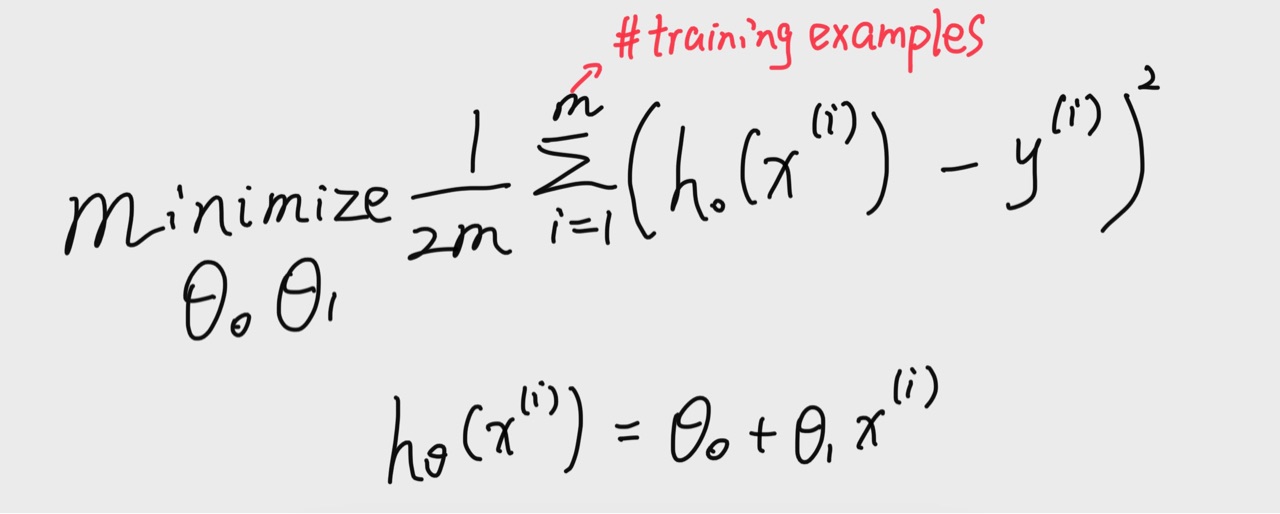 #training examples
minimize 1/2m m∑i=1 (h₀(x⁽ⁱ⁾) - y⁽ⁱ⁾)²
θ₀ θ₁
hθ(x⁽ⁱ⁾) = θ₀ + θ₁ x⁽ⁱ⁾